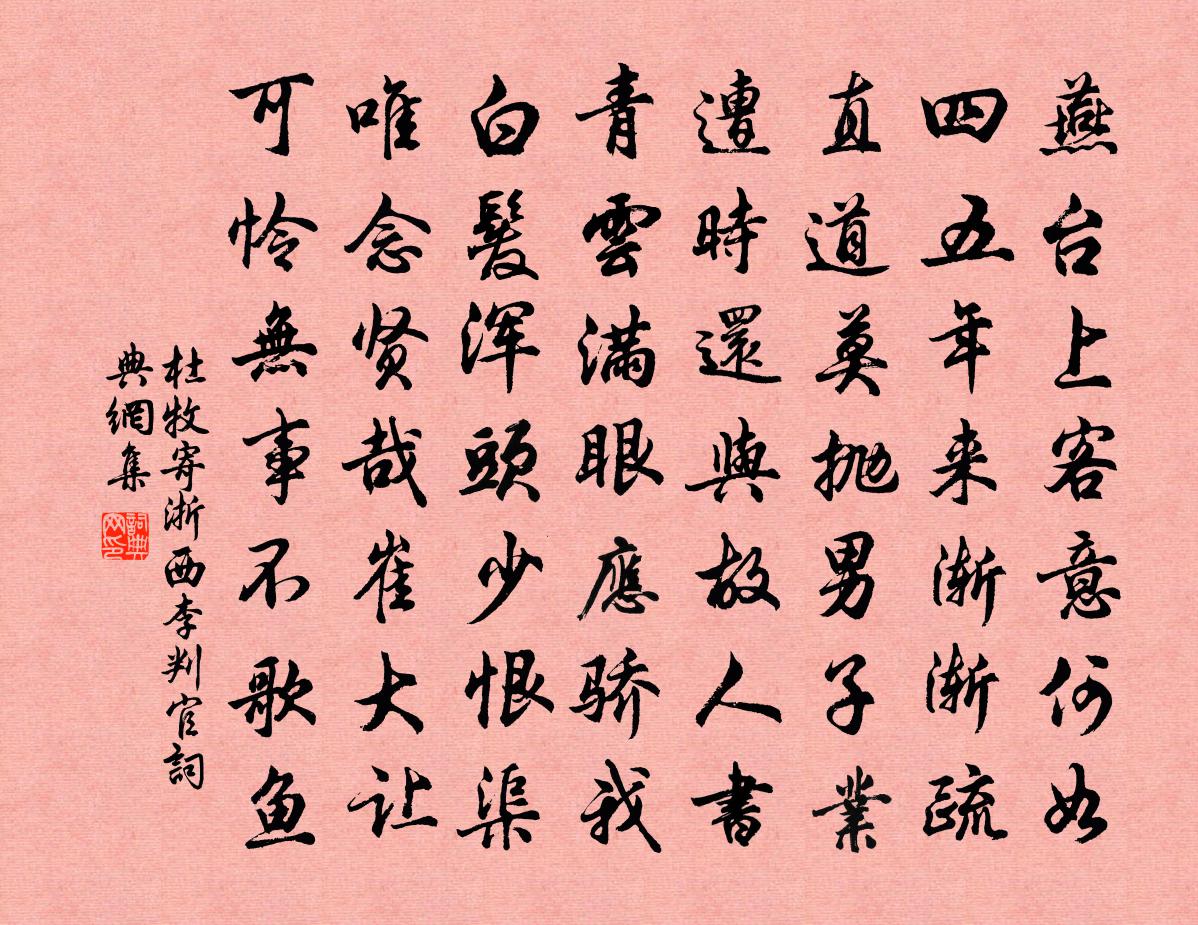 燕台上客意何如
四五年来渐渐疏
直道莫抛男子業
遭時還與故人書
青雲滿眼應骄我
白髮浑頭少恨渠
唯念贤哉崔大让
可怜無事不歌鱼
杜牧寄浙西李判官詞
典網集
詞典网印